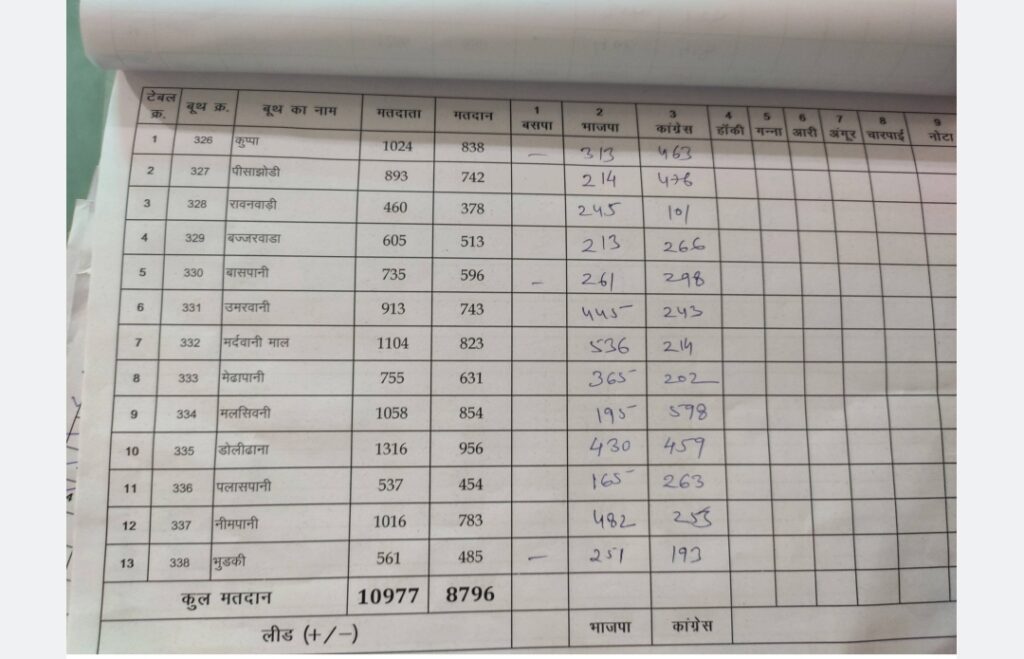 टेबल क्र. बूथ क्र. बूथ का नाम मतदाता मतदान 1 बसपा 2 भाजपा 3 कांग्रेस 4 हॉकी 5 गन्ना 6 आरी 7 अंगूर 8 चारपाई 9 नोटा
1 326 कुप्पा 1024 838 — 313 463
2 327 पीसाझोडी 893 742 214 476
3 328 रावनवाड़ी 460 378 245 101
4 329 बज्जरवाडा 605 513 213 266
5 330 बासपानी 735 596 — 261 298
6 331 उमरवानी 913 743 445 243
7 332 मर्दवानी माल 1104 823 536 214
8 333 मेढापानी 755 631 365 202
9 334 मलसिवनी 1058 854 195 598
10 335 डोलीढाना 1316 956 430 459
11 336 पलासपानी 537 454 165 263
12 337 नीमपानी 1016 783 482 253
13 338 भुडकी 561 485 — 251 193
कुल मतदान 10977 8796
लीड (+/−) भाजपा कांग्रेस